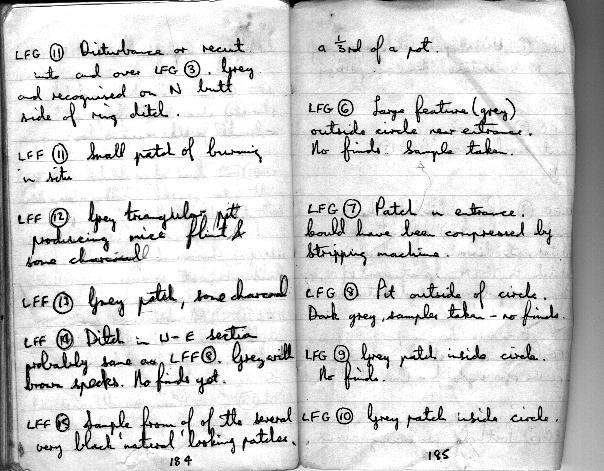 LFG ⑪ Disturbance or recut
into and over LFG ③. Grey
and recognised on N butt
side of ring ditch.
LFF ⑪ Small patch of burning
in situ
LFF ⑫ Grey triangular pit
producing nice flint &
some charcoal
LFF ⑬ Grey patch, some charcoal
LFF ⑭ Ditch in W-E section
probably same as LFF ⑧. Grey with
brown specks. No finds yet.
LFF ⑮ Sample from of of the several
very black 'natural' looking patches.
184
a ⅓rd of a pot.
LFG ⑥ Large feature (grey)
outside circle near entrance.
No finds. Sample taken.
LFG ⑦ Patch in entrance.
Could have been compressed by
stripping machine.
LFG ⑧ Pit outside of circle.
Dark grey, samples taken - no finds.
LFG ⑨ Grey patch inside circle.
No finds.
LFG ⑩ Grey patch inside circle.
185